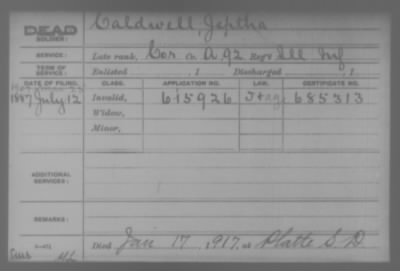 DEAD
SOLDIER:
Caldwell, Jeptha
SERVICE:
Late rank, Cor Co. A, 92 Reg't Ill Inf
TERM OF SERVICE:
Enlisted , 1 Discharged , 1
DATE OF FILING. CLASS. APPLICATION NO. LAW. CERTIFICATE NO.
1887 July 12 Invalid, 615926 685313
Widow,
Minor,
ADDITIONAL SERVICES:
REMARKS:
Died Jan 17, 1917, at Platte S D